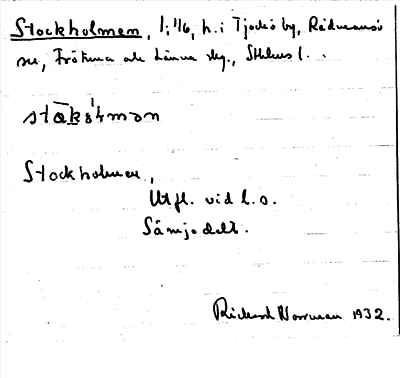 Stockholmen, l; 1/6, h. i Tjockö by, Rådmansö
sn, Frötuna och Länna skg., Sthlms l.
stɷkɷ̀ɫmən
Stockholmen,
Utfl. vid l. s.
Sämjodelt.
Rickard Norrman 1932.